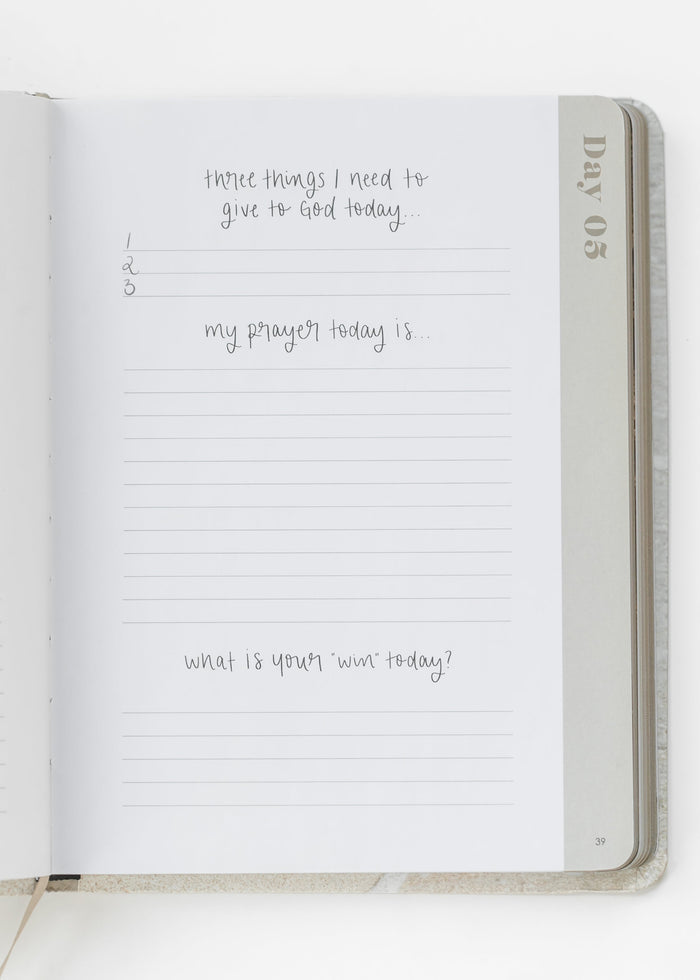 three things I need to
give to God today...
1
2
3
my prayer today is...
what is your "win" today?
Day 05
39